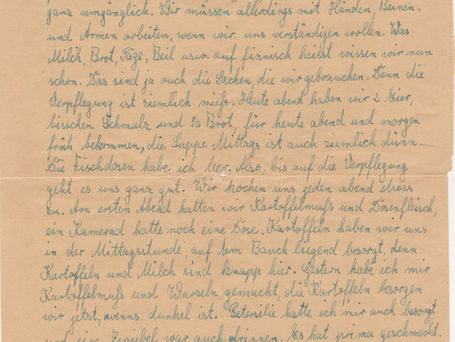 ganz umgänglich. Wir müssen allerdings mit Händen, Beinen
und Armen arbeiten, wenn wir uns verständigen wollen. Was
Milch, Brot, Säge, Beil usw. auf finnisch heisst wissen wir nun
schon. Das sind ja auch die Sachen, die wir gebrauchen. Denn die
Verpflegung ist ziemlich mies. Heute abend haben wir 2 Eier,
bisschen Schmalz und ⅓ Brot, für heute abend und morgen
früh bekommen, die Suppe Mittags ist auch ziemlich dünn.
Die Fischdosen habe ich leer. Also, bis auf die Verpflegung
geht es uns ganz gut. Wir kochen uns jeden abend etwas
zu. Am ersten Abend hatten wir Kartoffelmuß und Dosenfleisch,
ein Kamerad hatte noch eine Dose. Kartoffeln haben wir uns
in der Mittagsstunde, auf dem Bauch liegend besorgt, denn
Kartoffeln und Milch sind knapp hier. Gestern habe ich mir
Kartoffelmuß und Wurzeln gemacht, die Kartoffeln besorgen
wir jetzt, wenns dunkel ist. Petersilie hatte ich mir auch besorgt
und Zwiebel war auch drinnen. Es hat prima geschmeckt.